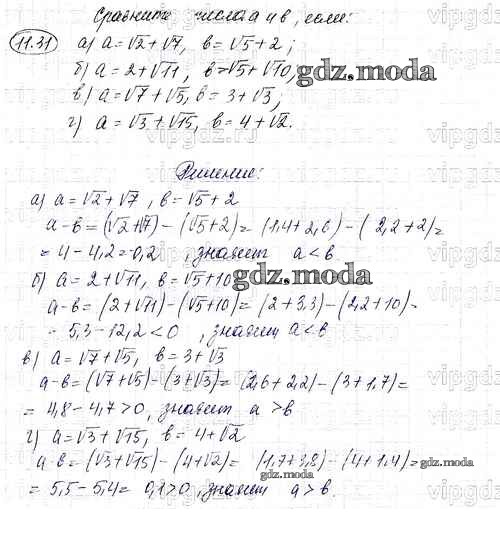 Сравните числа a и b, если:
11.31 а) a = √2 + √7, b = √5 + 2;
б) a = 2 + √11, b = √5 + √10,
gdz.moda
в) a = √7 + √5, b = 3 + √3;
г) a = √3 + √15, b = 4 + √2.
Решение:
а) a = √2 + √7, b = √5 + 2
a - b = (√2 + √7) - (√5 + 2) = (1,4 + 2,6) - (2,2 + 2) =
= 4 - 4,2 = -0,2, значит a < b
б) a = 2 + √11, b = √5 + 10
gdz.moda
a - b = (2 + √11) - (√5 + 10) = (2 + 3,3) - (2,2 + 10) -
- 5,3 - 12,2 < 0, значит a < b
в) a = √7 + √5, b = 3 + √3
a - b = (√7 + √5) - (3 + √3) = (2,6 + 2,2) - (3 + 1,7) =
= 4,8 - 4,7 > 0, значит a > b
г) a = √3 + √15, b = 4 + √2
a - b = (√3 + √15) - (4 + √2) = (1,7 + 3,8) - (4 + 1,4) =
gdz.moda
= 5,5 - 5,4 = 0,1 > 0, значит a > b.
gdz.moda